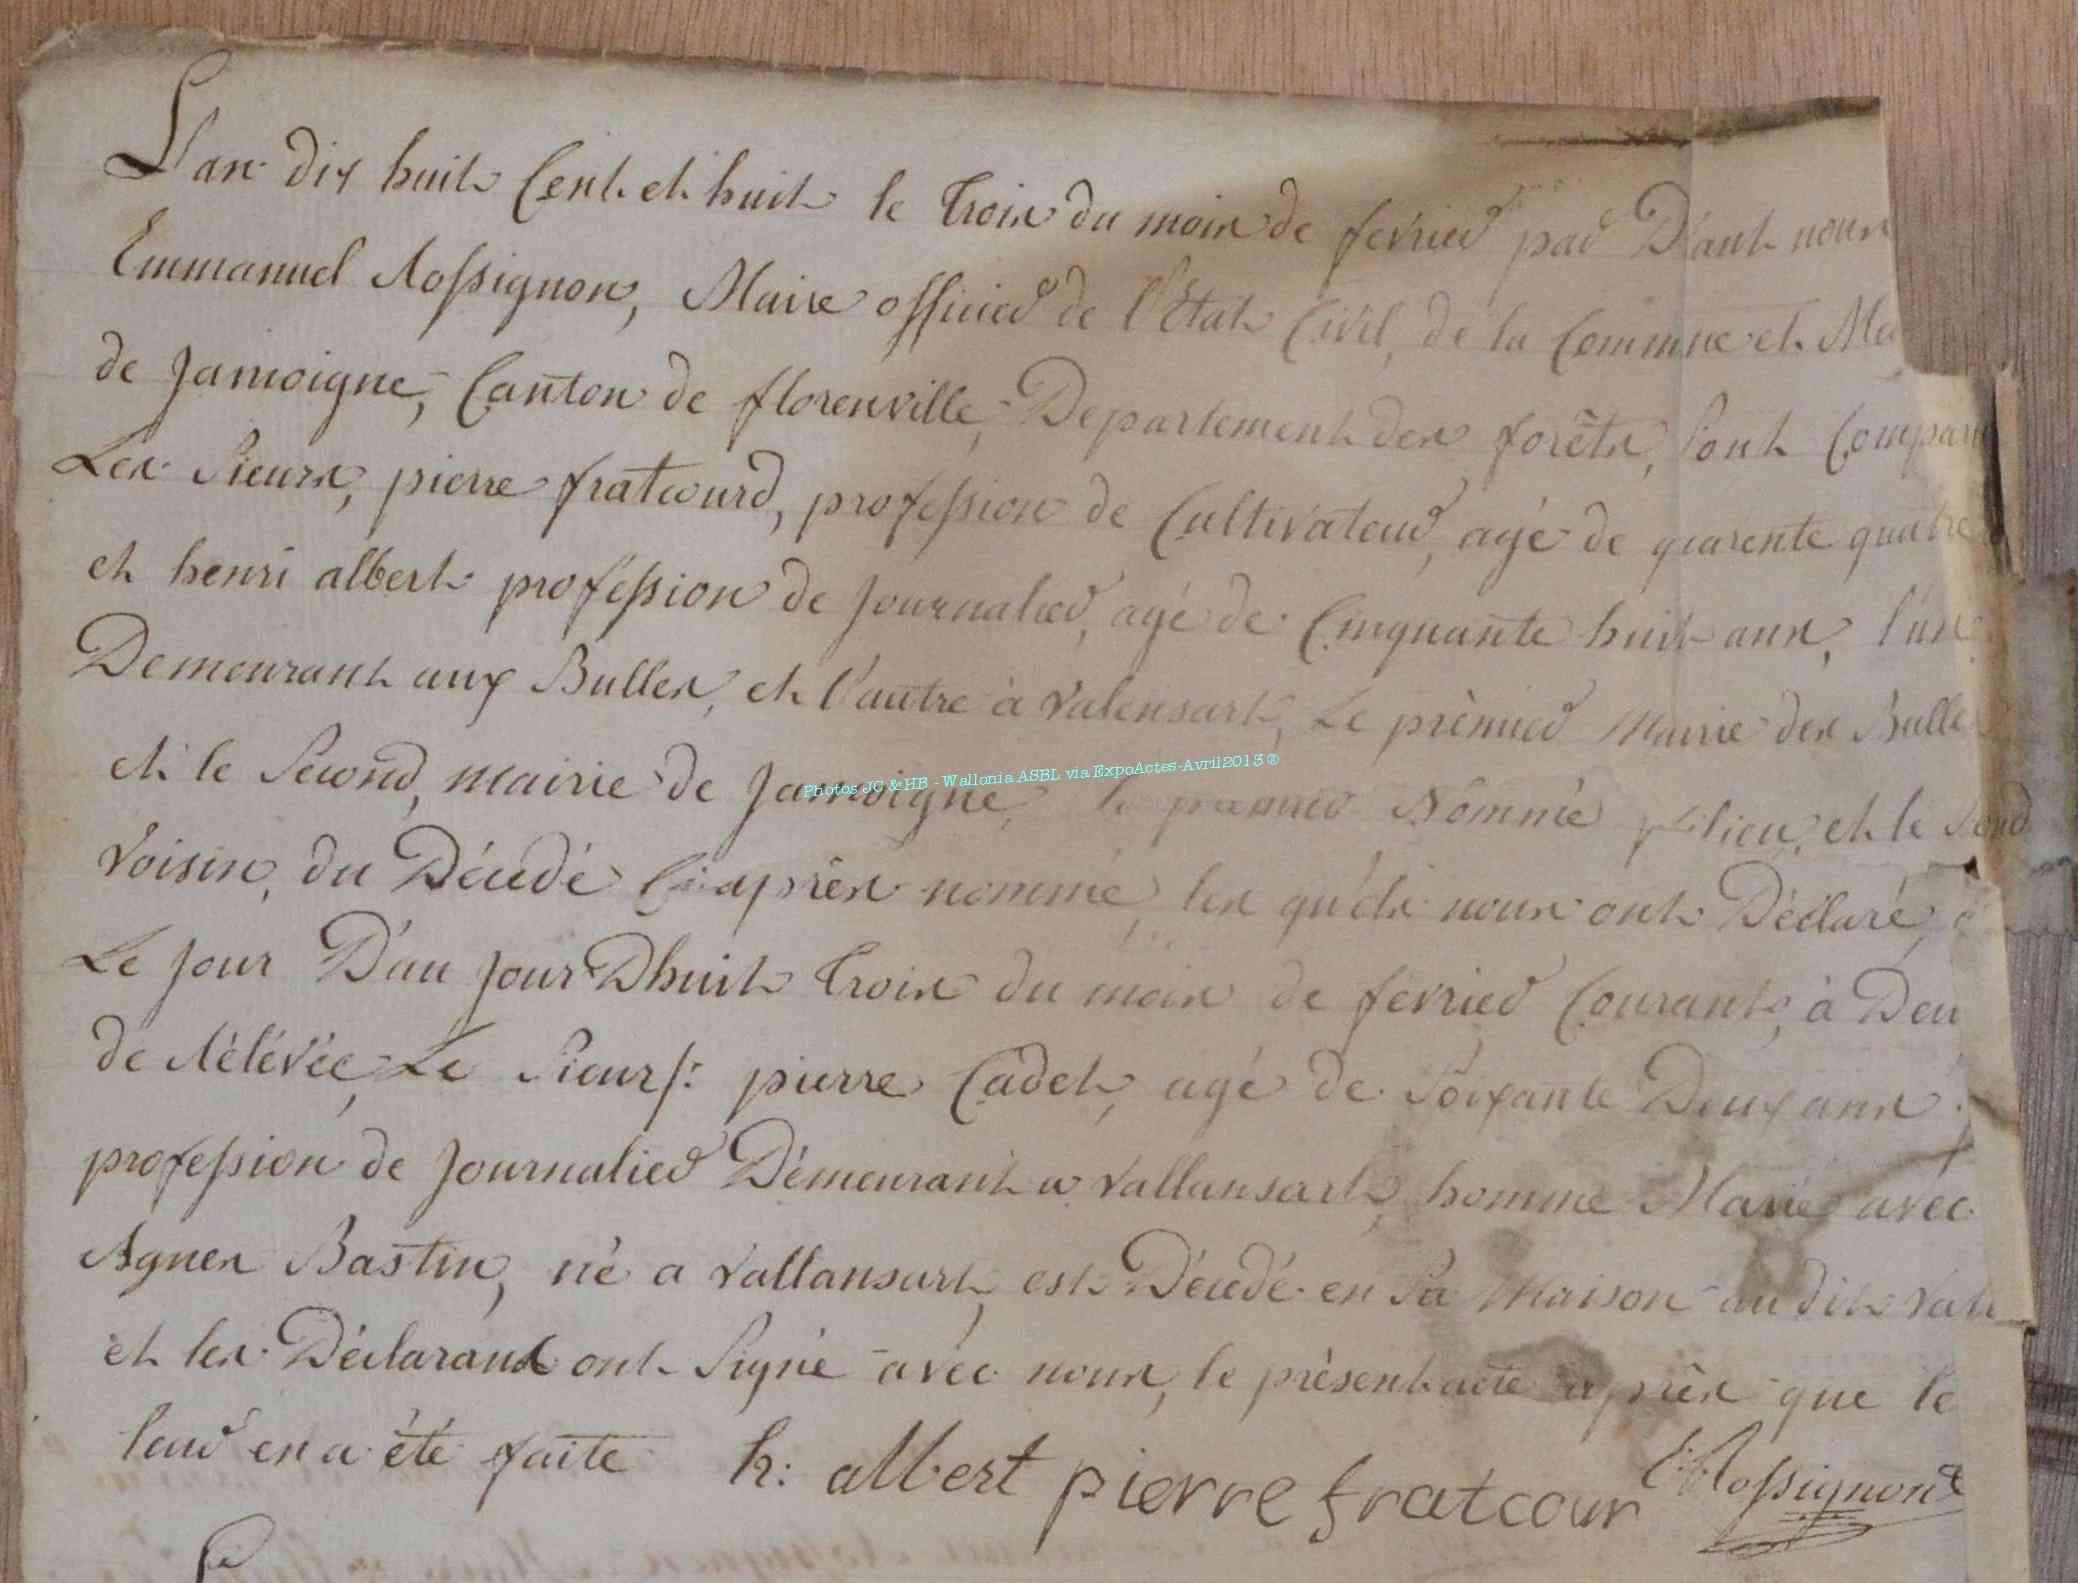 L'an dix huit Cent et huit le trois du mois de fevrier par D'ant nous
Emmanuel Rossignon, Maire officier de l'Etat Civil, de la Commune et Ma
de Jamoigne, Canton de florenville, Departement des forêts, Sont Compar
Les Sieurs, pierre fratcourd, profession de Cultivateur, agé de quarente quatre
et henri albert profession de Journalier, agé de Cinquante huit ans, l'un
Demeurant aux Bulles, et l'autre à Valensart, Le prèmier Mairie des Bulle
et le Second, mairie de Jamoigne, le premier Nommé et le
Photos JC & HB - Wallonia ASBL via ExpoActes-Avril2013 ®
Voisin, du Décedé Ci après nommé, les quéls nous ont Déclaré,
Le Jour D'au Jour Dhuit trois du mois de fevrier Courant, à Deu
de Rélévée, Le Sieur /: pierre Cadet, agé de Soixante Deux ans
profession de Journalier Démeurant a Vallansart, homme Marié avec
Agnes Bastin, né a Vallansart, est Décedé en Sa Maison au dit Vall
et les Déclarans ont Signé avec nous, le présent acte après que le
leur en a été faite h: albert pierre fratcour E: Rossignon